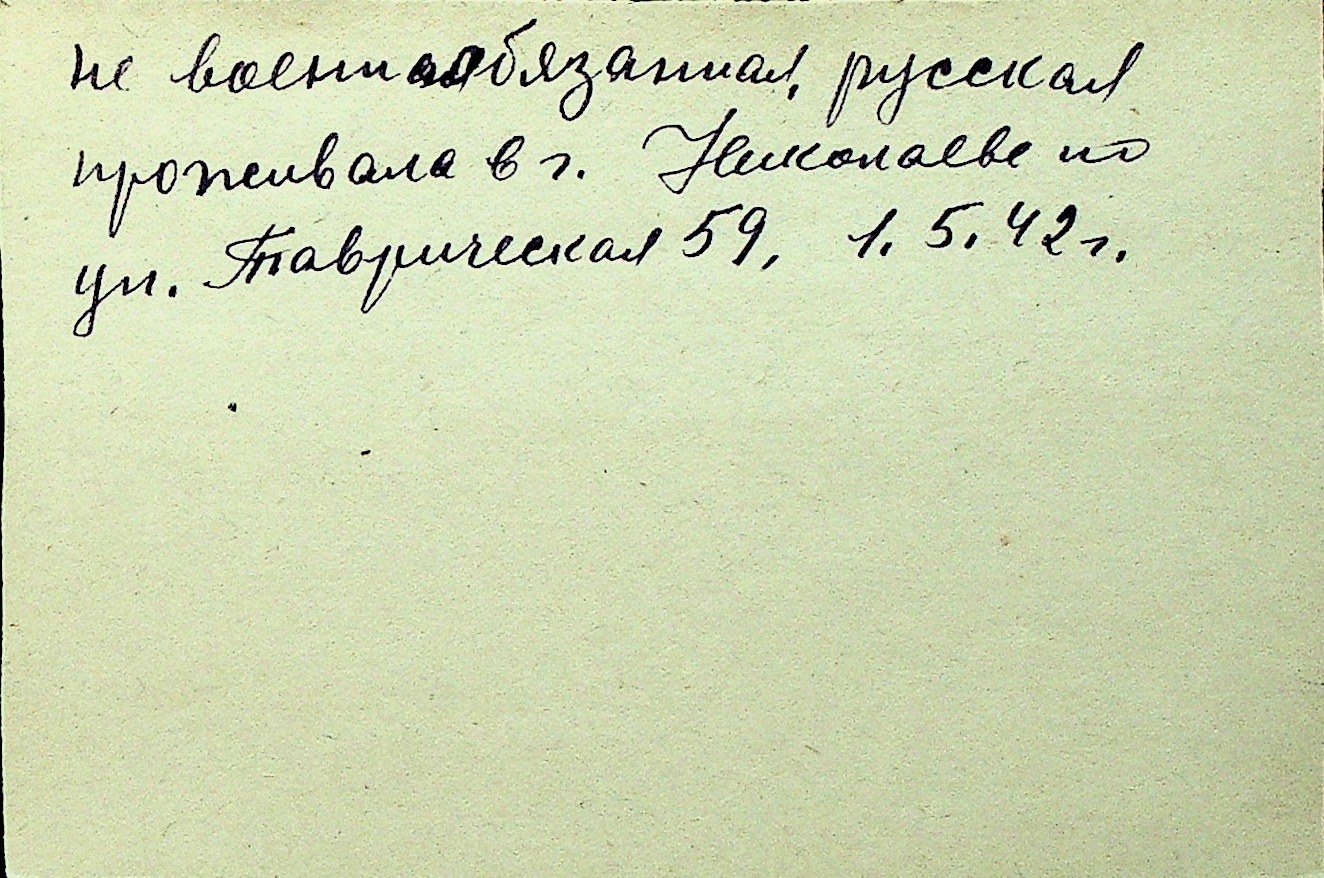 не военнообязанная, русская
проживала в г. Николаеве по
ул. Таврическая 59, 1.5.42 г.